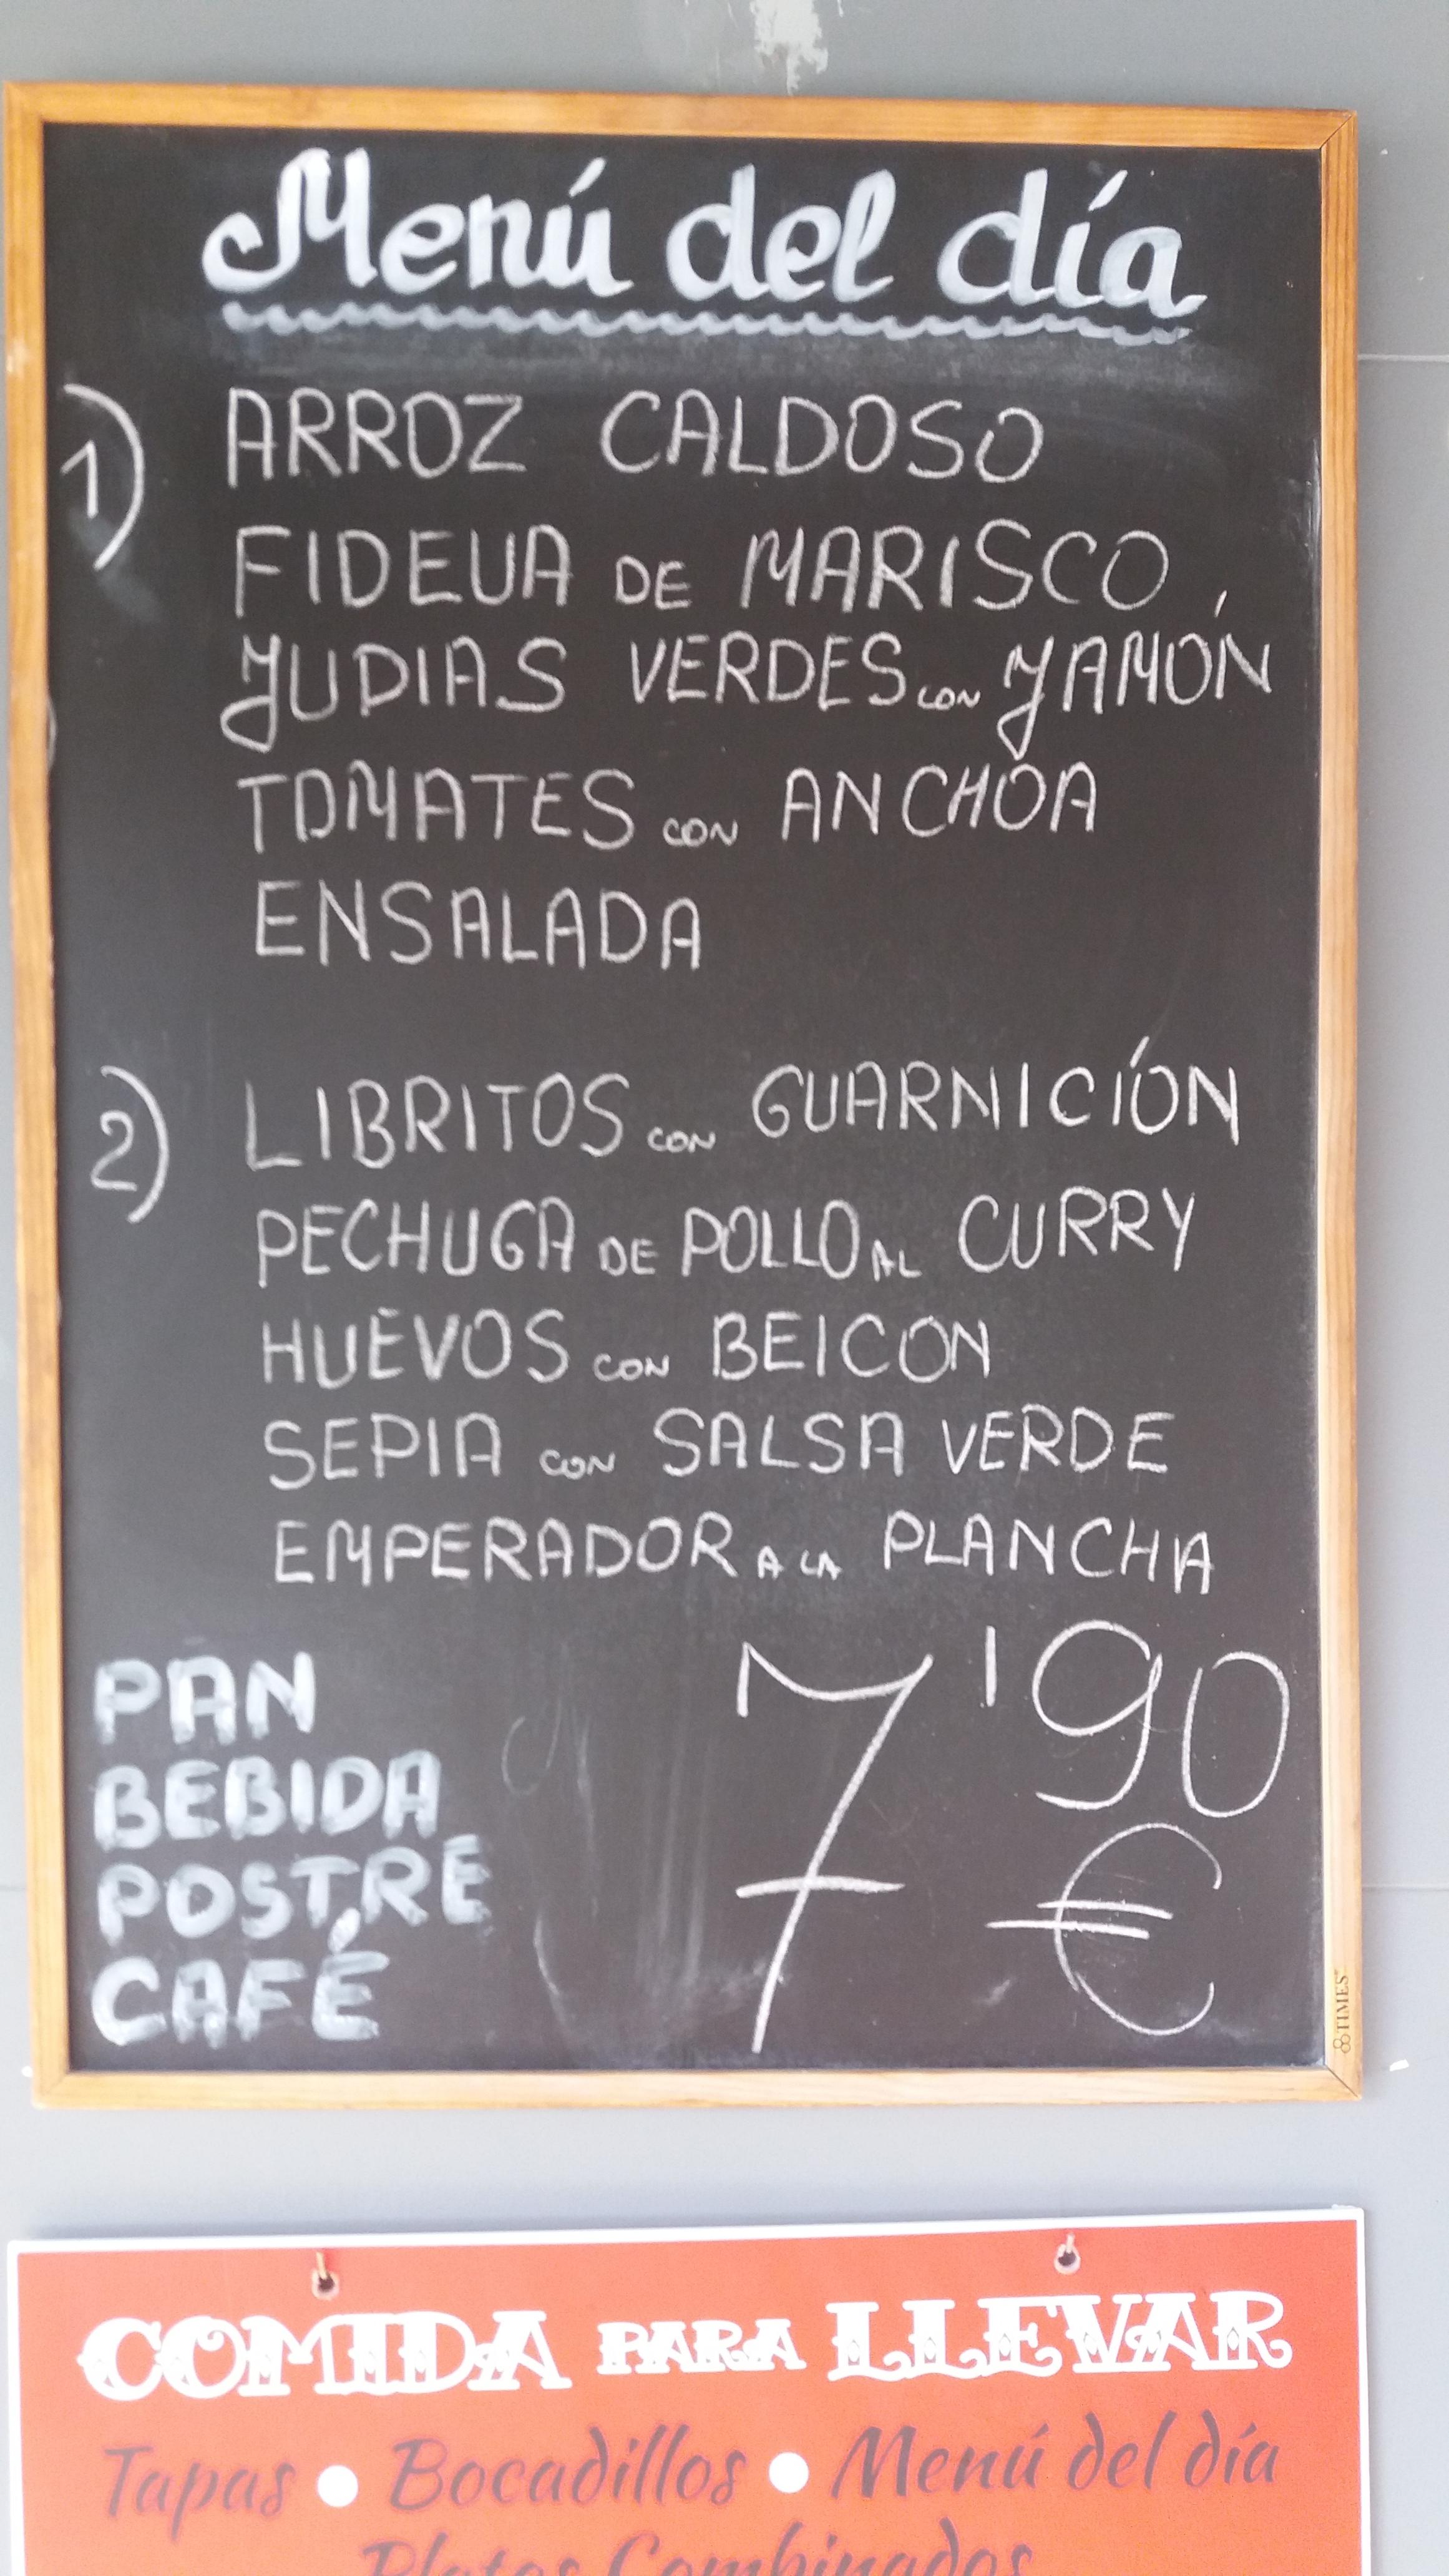 Menú del día
1) ARROZ CALDOSO
FIDEUA DE MARISCO
JUDIAS VERDES CON JAMÓN
TOMATES CON ANCHOA
ENSALADA
2) LIBRITOS CON GUARNICIÓN
PECHUGA DE POLLO AL CURRY
HUEVOS CON BEICON
SEPIA CON SALSA VERDE
EMPERADOR A LA PLANCHA
PAN
BEBIDA
POSTRE
CAFÉ
7'90
€
TIMES
COMIDA PARA LLEVAR
Tapas • Bocadillos • Menú del día
Platos Combinados